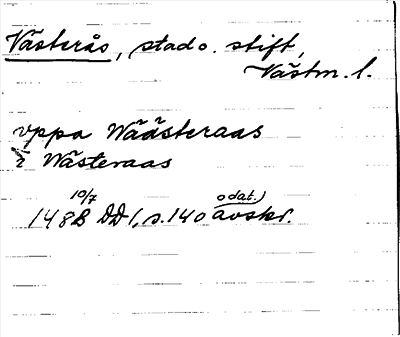 Västerås, stad o. stift,
Västm. l.
vppa Wäästeraas
i Wästeraas
10/7 odat.)
148B DD 1, s. 140 avskr.